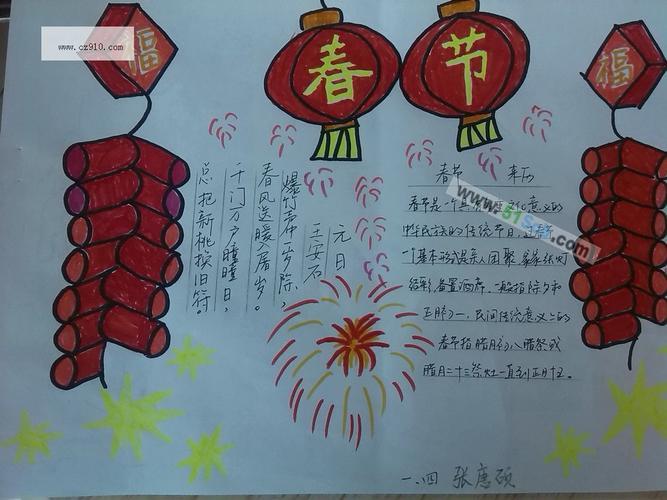 www.cz910.com
福
春
节
福
元日
王安石
爆竹声中一岁除，
春风送暖入屠苏。
千门万户曈曈日，
总把新桃换旧符。
春节 来历
春节是
中华民族的传统节日，
一个基本形式是亲人团聚
结彩，备置酒席，一般指除夕和
正月初一，民间传统意义上的
春节指腊月初八腊祭或
腊月二十三祭灶一直到正月十五。
一.四 张惠硕